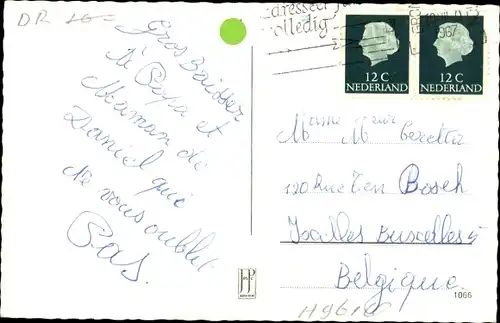 DR 20=
Gros Baiser
à Papa et
Maman de
Daniel qui
de vous oublit
Pas.
dresseer
olledig
1967
12 C
NEDERLAND
12 C
NEDERLAND
M
120 Rue Ten Bosch
Ixelles Bruxelles 5
Belgique
HP
1066